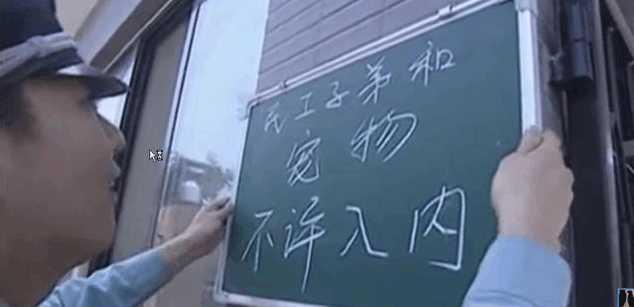 民工子弟和
宠物
不许入内